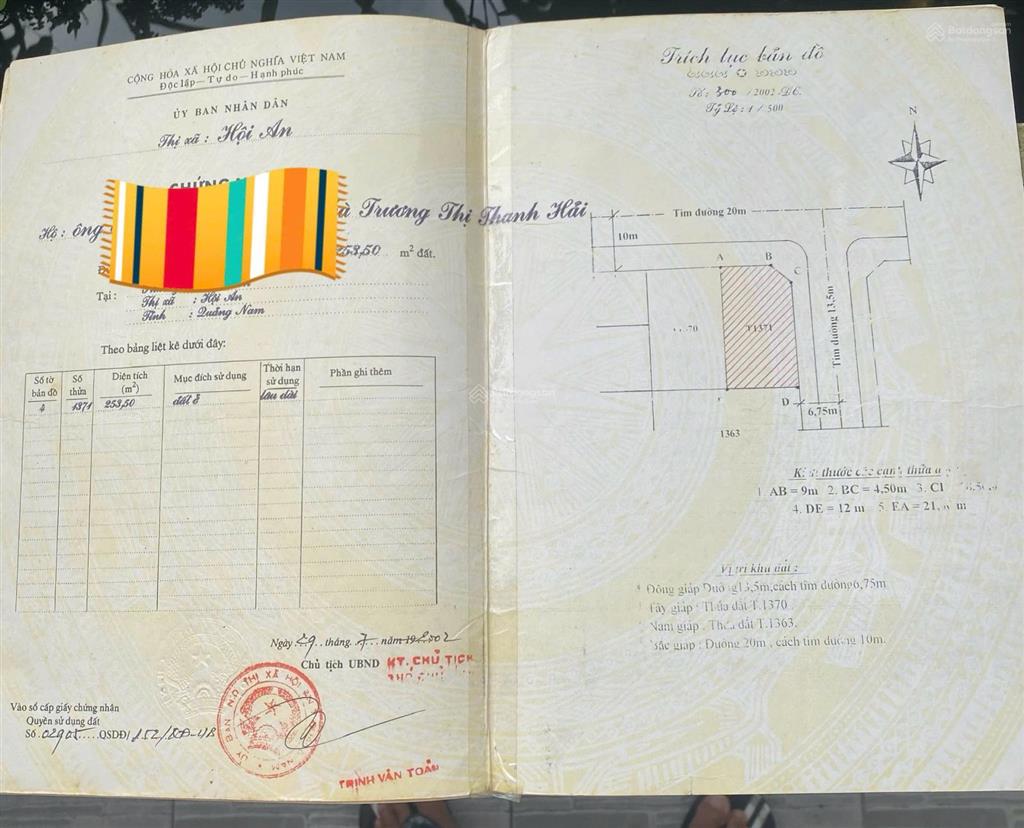 CỘNG HÒA XÃ HỘI CHỦ NGHĨA VIỆT NAM
Độc lập - Tự do - Hạnh phúc
ỦY BAN NHÂN DÂN
Thị xã : Hội An
CHỨNG
Hộ : ông
à Trương Thị Thanh Hải
253,50 m² đất.
Tại :
Thị xã : Hội An
Tỉnh : Quảng Nam
Theo bảng liệt kê dưới đây:
Số tờ bản đồ
Số thửa
Diện tích (m²)
Mục đích sử dụng
Thời hạn sử dụng
Phần ghi thêm
4
1371
253,50
đất ở
lâu dài
Ngày 29 tháng 7 năm 2002
Chủ tịch UBND
KT. CHỦ TỊCH
TRỊNH VĂN TOẢN
Vào sổ cấp giấy chứng nhận
Quyền sử dụng đất
Số 02905 QSDĐ
Trích lục bản đồ
Số: 300 /2002 ĐC.
Tỷ Lệ : 1 / 500
N
Tim đường 20m
10m
A
B
C
T1371
Tim đường 13,5m
D
6,75m
1363
thước các cạnh thửa
1. AB = 9m 2. BC = 4,50m 3.
4. DE = 12 m 5. EA = 21,
Vị trí khu đất :
* Đông giáp Đường 13,5m,cách tim đường6,75m
Tây giáp : Thửa đất T.1370
Nam giáp : Thửa đất T.1363.
Bắc giáp : Đường 20m , cách tim đường 10m.
Batdongsan